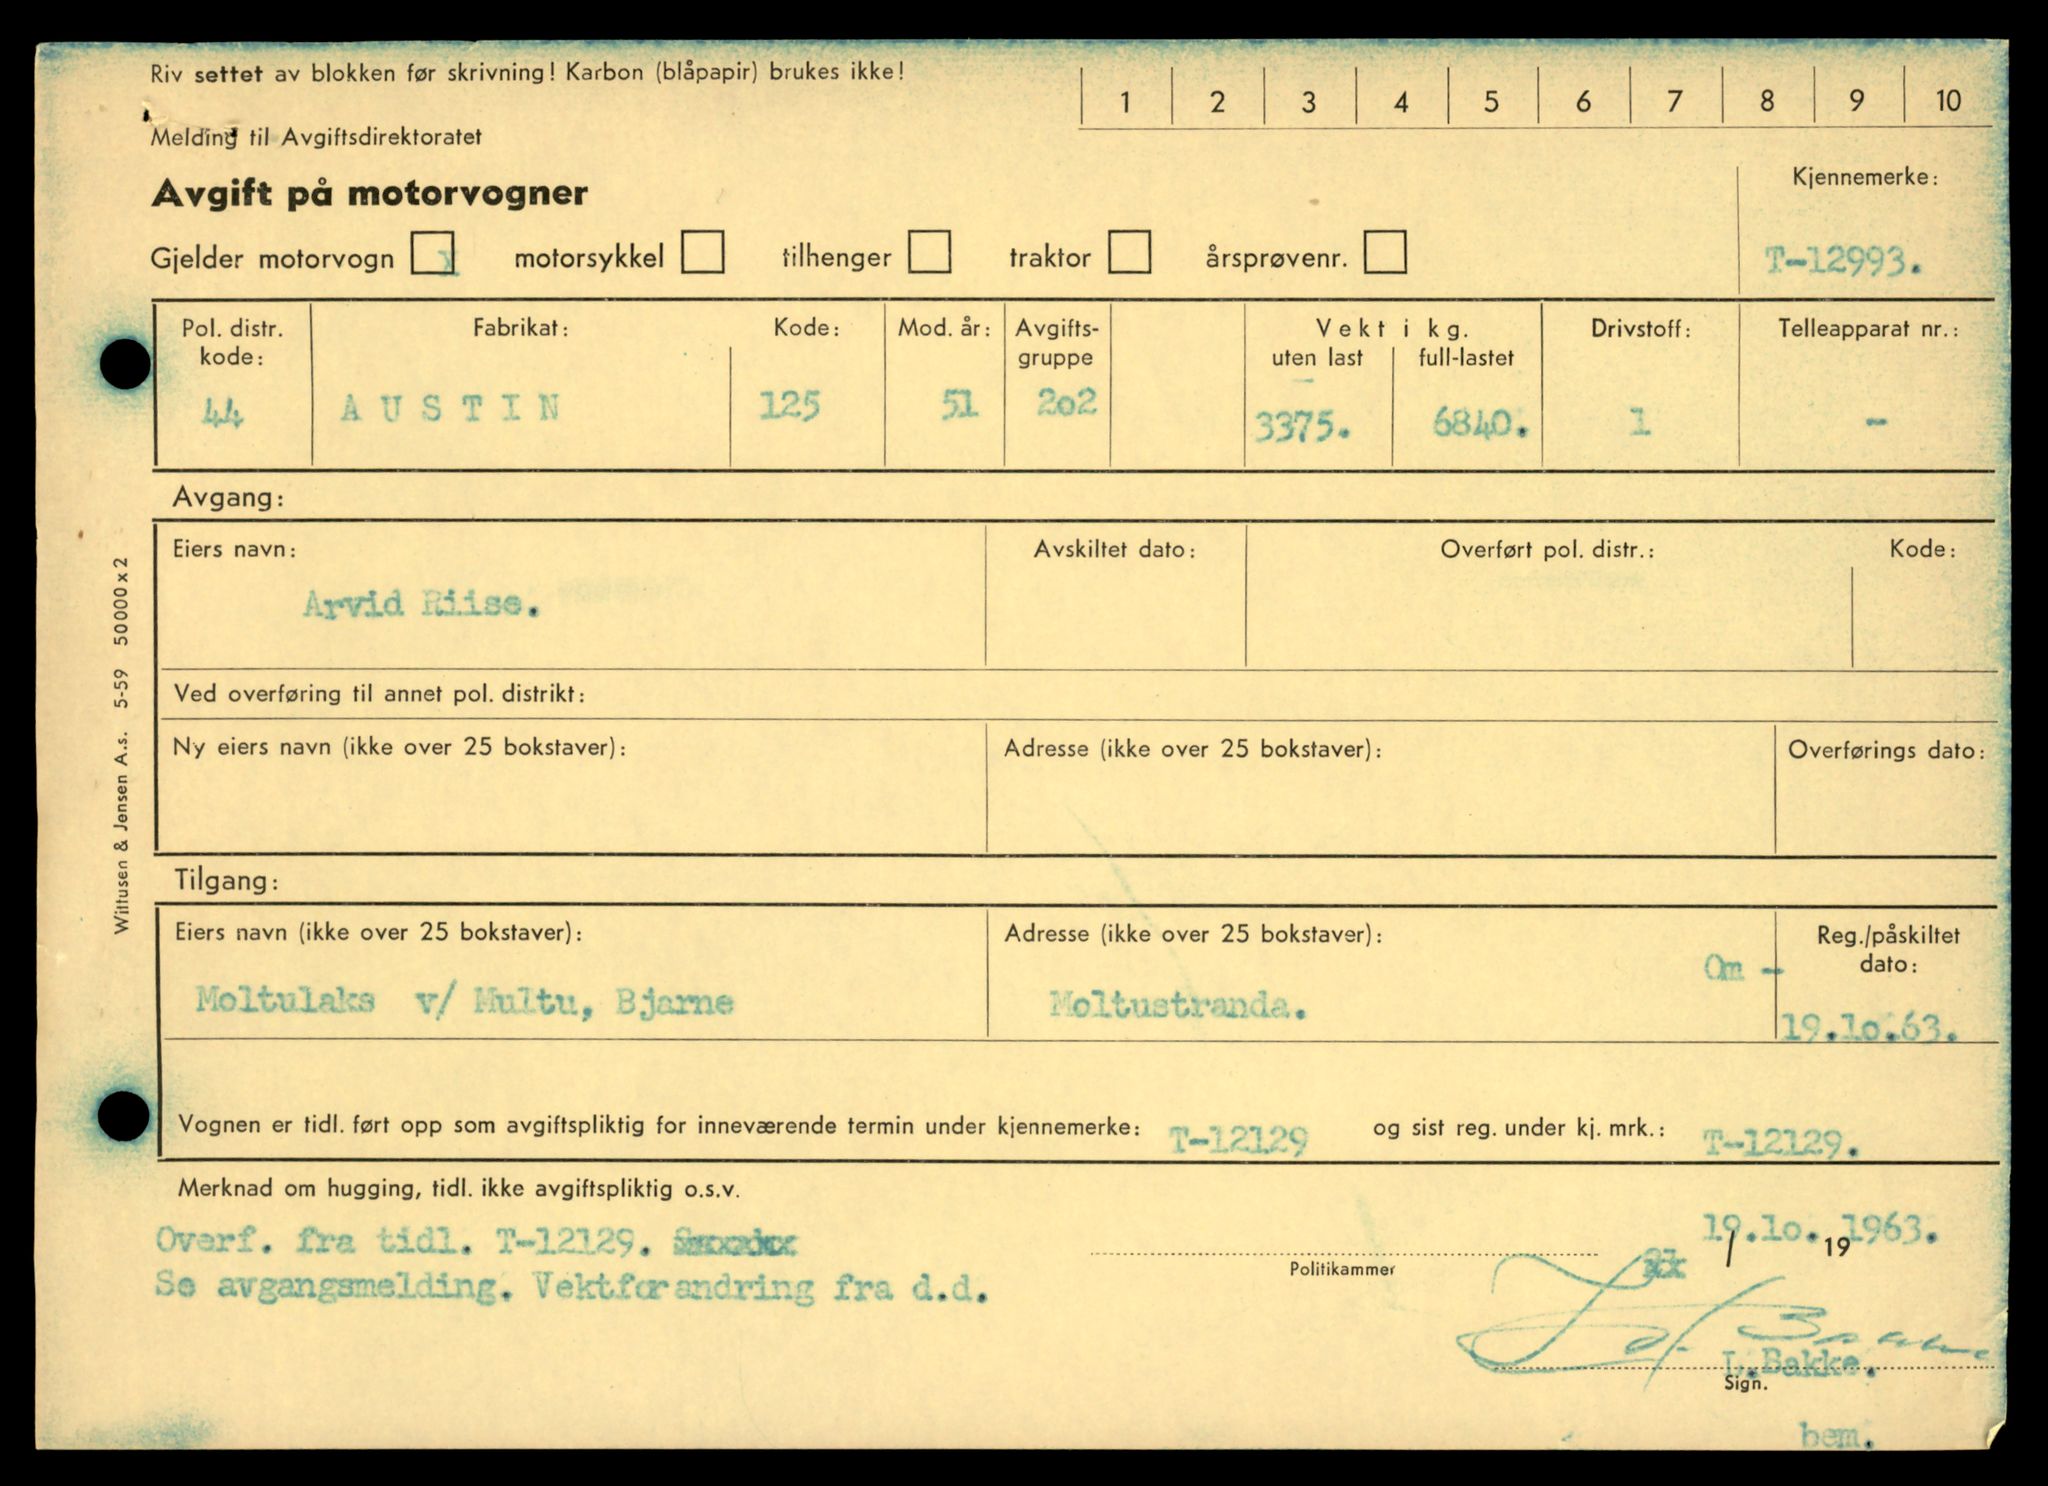 Riv settet av blokken før skrivning! Karbon (blåpapir) brukes ikke!
1 2 3 4 5 6 7 8 9 10
Melding til Avgiftsdirektoratet
Avgift på motorvogner
Kjennemerke:
Gjelder motorvogn x motorsykkel tilhenger traktor årsprøvenr.
T-12993.
Pol. distr. kode: Fabrikat: Kode: Mod. år: Avgifts-gruppe Vekt i kg. uten last full-lastet Drivstoff: Telleapparat nr.:
44 AUSTIN 125 51 2o2 3375. 6840. 1 -
Avgang:
Eiers navn: Avskiltet dato: Overført pol. distr.: Kode:
Arvid Riise.
Ved overføring til annet pol. distrikt:
Ny eiers navn (ikke over 25 bokstaver): Adresse (ikke over 25 bokstaver): Overførings dato:
Tilgang:
Eiers navn (ikke over 25 bokstaver): Adresse (ikke over 25 bokstaver): Reg./påskiltet dato:
Om -
Moltulaks v/ Multu, Bjarne Moltustranda. 19.1o.63.
Vognen er tidl. ført opp som avgiftspliktig for inneværende termin under kjennemerke: T-12129 og sist reg. under kj. mrk.: T-12129.
Merknad om hugging, tidl. ikke avgiftspliktig o.s.v.
Overf. fra tidl. T-12129.
Se avgangsmelding. Vektforandring fra d.d.
19/.1o. 19 1963.
Politikammer
L.Bakke.
Sign.
bem.
Wittusen & Jensen A.s. 5-59 50000x2